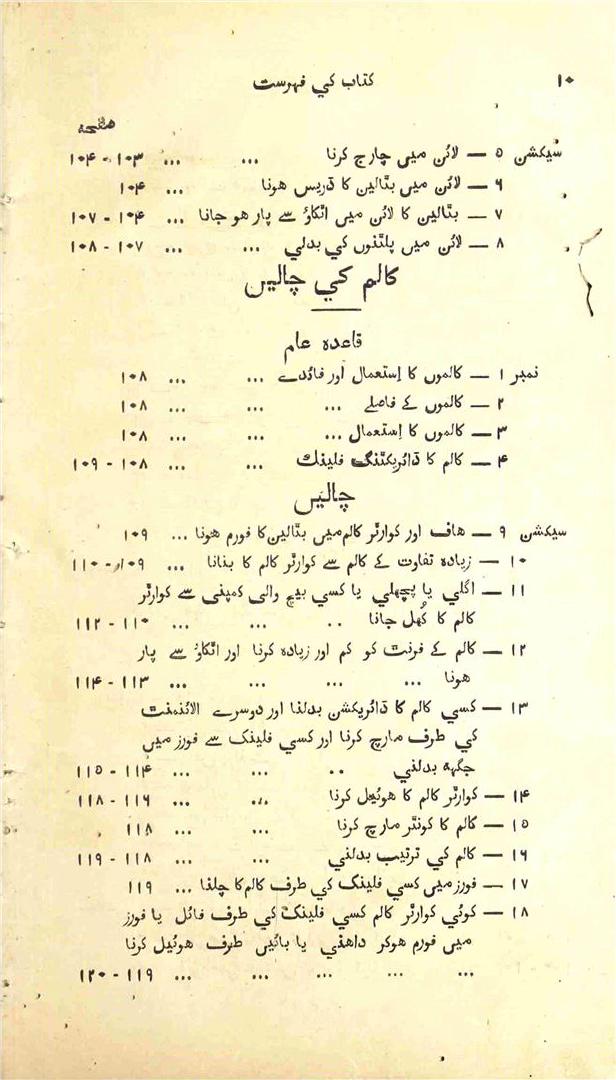 ۱۰ کتاب کي فہرست
صفحہ
سیکشن ۵ — لائن میں چارج کرنا ... ... ۱۰۳ - ۱۰۴
۶ — لائن میں بٹالین کا ڈریس ہونا ... ۱۰۴
۷ — بٹالین کا لائن میں اٹکاؤ سے پار ہو جانا ... ۱۰۴ - ۱۰۷
۸ — لائن میں پلٹنوں کي بدلي ... ... ۱۰۷ - ۱۰۸
کالم کي چالیں
قاعدہ عام
نمبر ۱ — کالموں کا اِستعمال اور فائدے ... ... ۱۰۸
۲ — کالموں کے فاصلے ... ... ... ۱۰۸
۳ — کالموں کا اِستعمال ... ... ... ۱۰۸
۴ — کالم کا ڈائریکٹنگ فلینک ... ... ۱۰۸ - ۱۰۹
چالیں
سیکشن ۹ — ہاف اور کوارٹر کالم میں بٹالین کا فورم ہونا ... ۱۰۹
۱۰ — زیادہ تفاوت کے کالم سے کوارٹر کالم کا بنانا ... ۱۰۹ - ۱۱۰
۱۱ — اگلي یا پچھلي یا کسي بیچ والی کمپنی سے کوارٹر
کالم کا کُھل جانا .. ... ... ۱۱۰ - ۱۱۲
۱۲ — کالم کے فرنٹ کو کم اور زیادہ کرنا اور اٹکاؤ سے پار
ہونا ... ... ... ... ۱۱۳ - ۱۱۴
۱۳ — کسي کالم کا ڈائریکشن بدلنا اور دوسرے الائنمنٹ
کي طرف مارچ کرنا اور کسي فلینک سے فورز میں
جگہہ بدلني .. ... ... ۱۱۴ - ۱۱۵
۱۴ — کوارٹر کالم کا ہوئیل کرنا ... ... ۱۱۶ - ۱۱۸
۱۵ — کالم کا کونٹر مارچ کرنا ... ... ۱۱۸
۱۶ — کالم کي ترتیب بدلني ... ... ۱۱۸ - ۱۱۹
۱۷ — فورز میں کسي فلینک کي طرف کالم کا چلنا ... ۱۱۹
۱۸ — کوئي کوارٹر کالم کسي فلینک کي طرف فائل یا فورز
میں فورم ہوکر داهني یا بائیں طرف ہوئیل کرنا
... ... ... ... ... ۱۱۹ - ۱۲۰